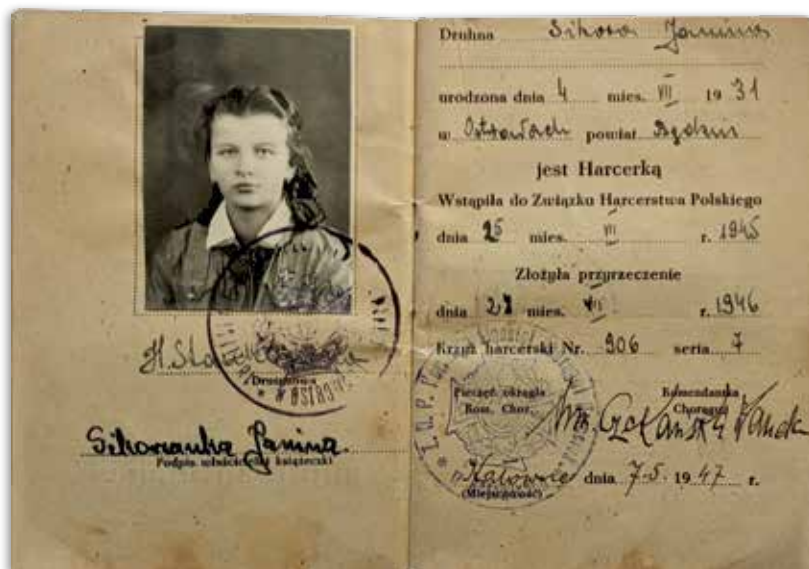 Drużynowa
Sikorzanka Janina
Podpis właścicielki książeczki
Druhna Sikora Janina
urodzona dnia 4 mies. VII 1931
w powiat
jest Harcerką
Wstąpiła do Związku Harcerstwa Polskiego
dnia 25 mies. VII r. 1945
Złożyła przyrzeczenie
dnia mies. r. 1946
Krzyż harcerski Nr. 906 seria 7
Pieczęć okrągła Komendantka
Kom. Chor. Chorągwi
Katowice dnia 7.5. 1947 r.
(Miejscowość)